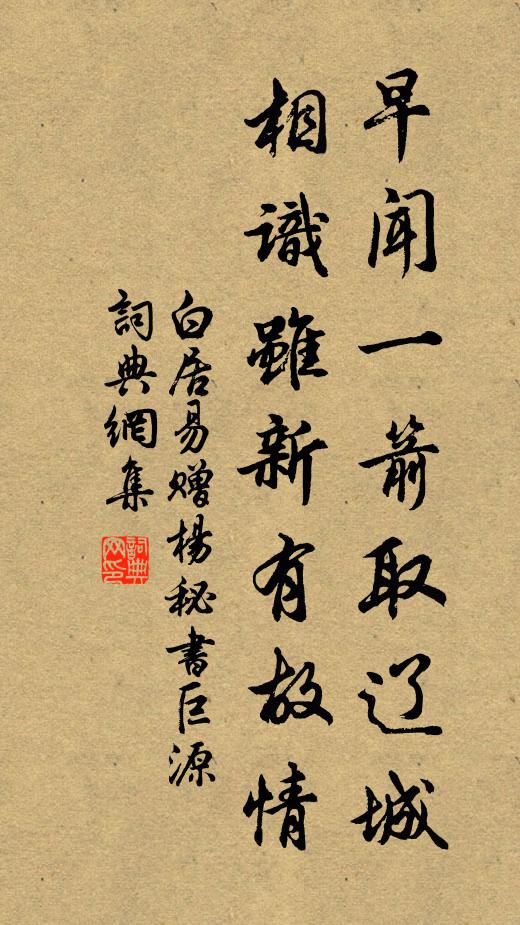 早闻一箭取辽城
相識雖新有故情
白居易赠楊秘書巨源
詞典網集
詞典网印